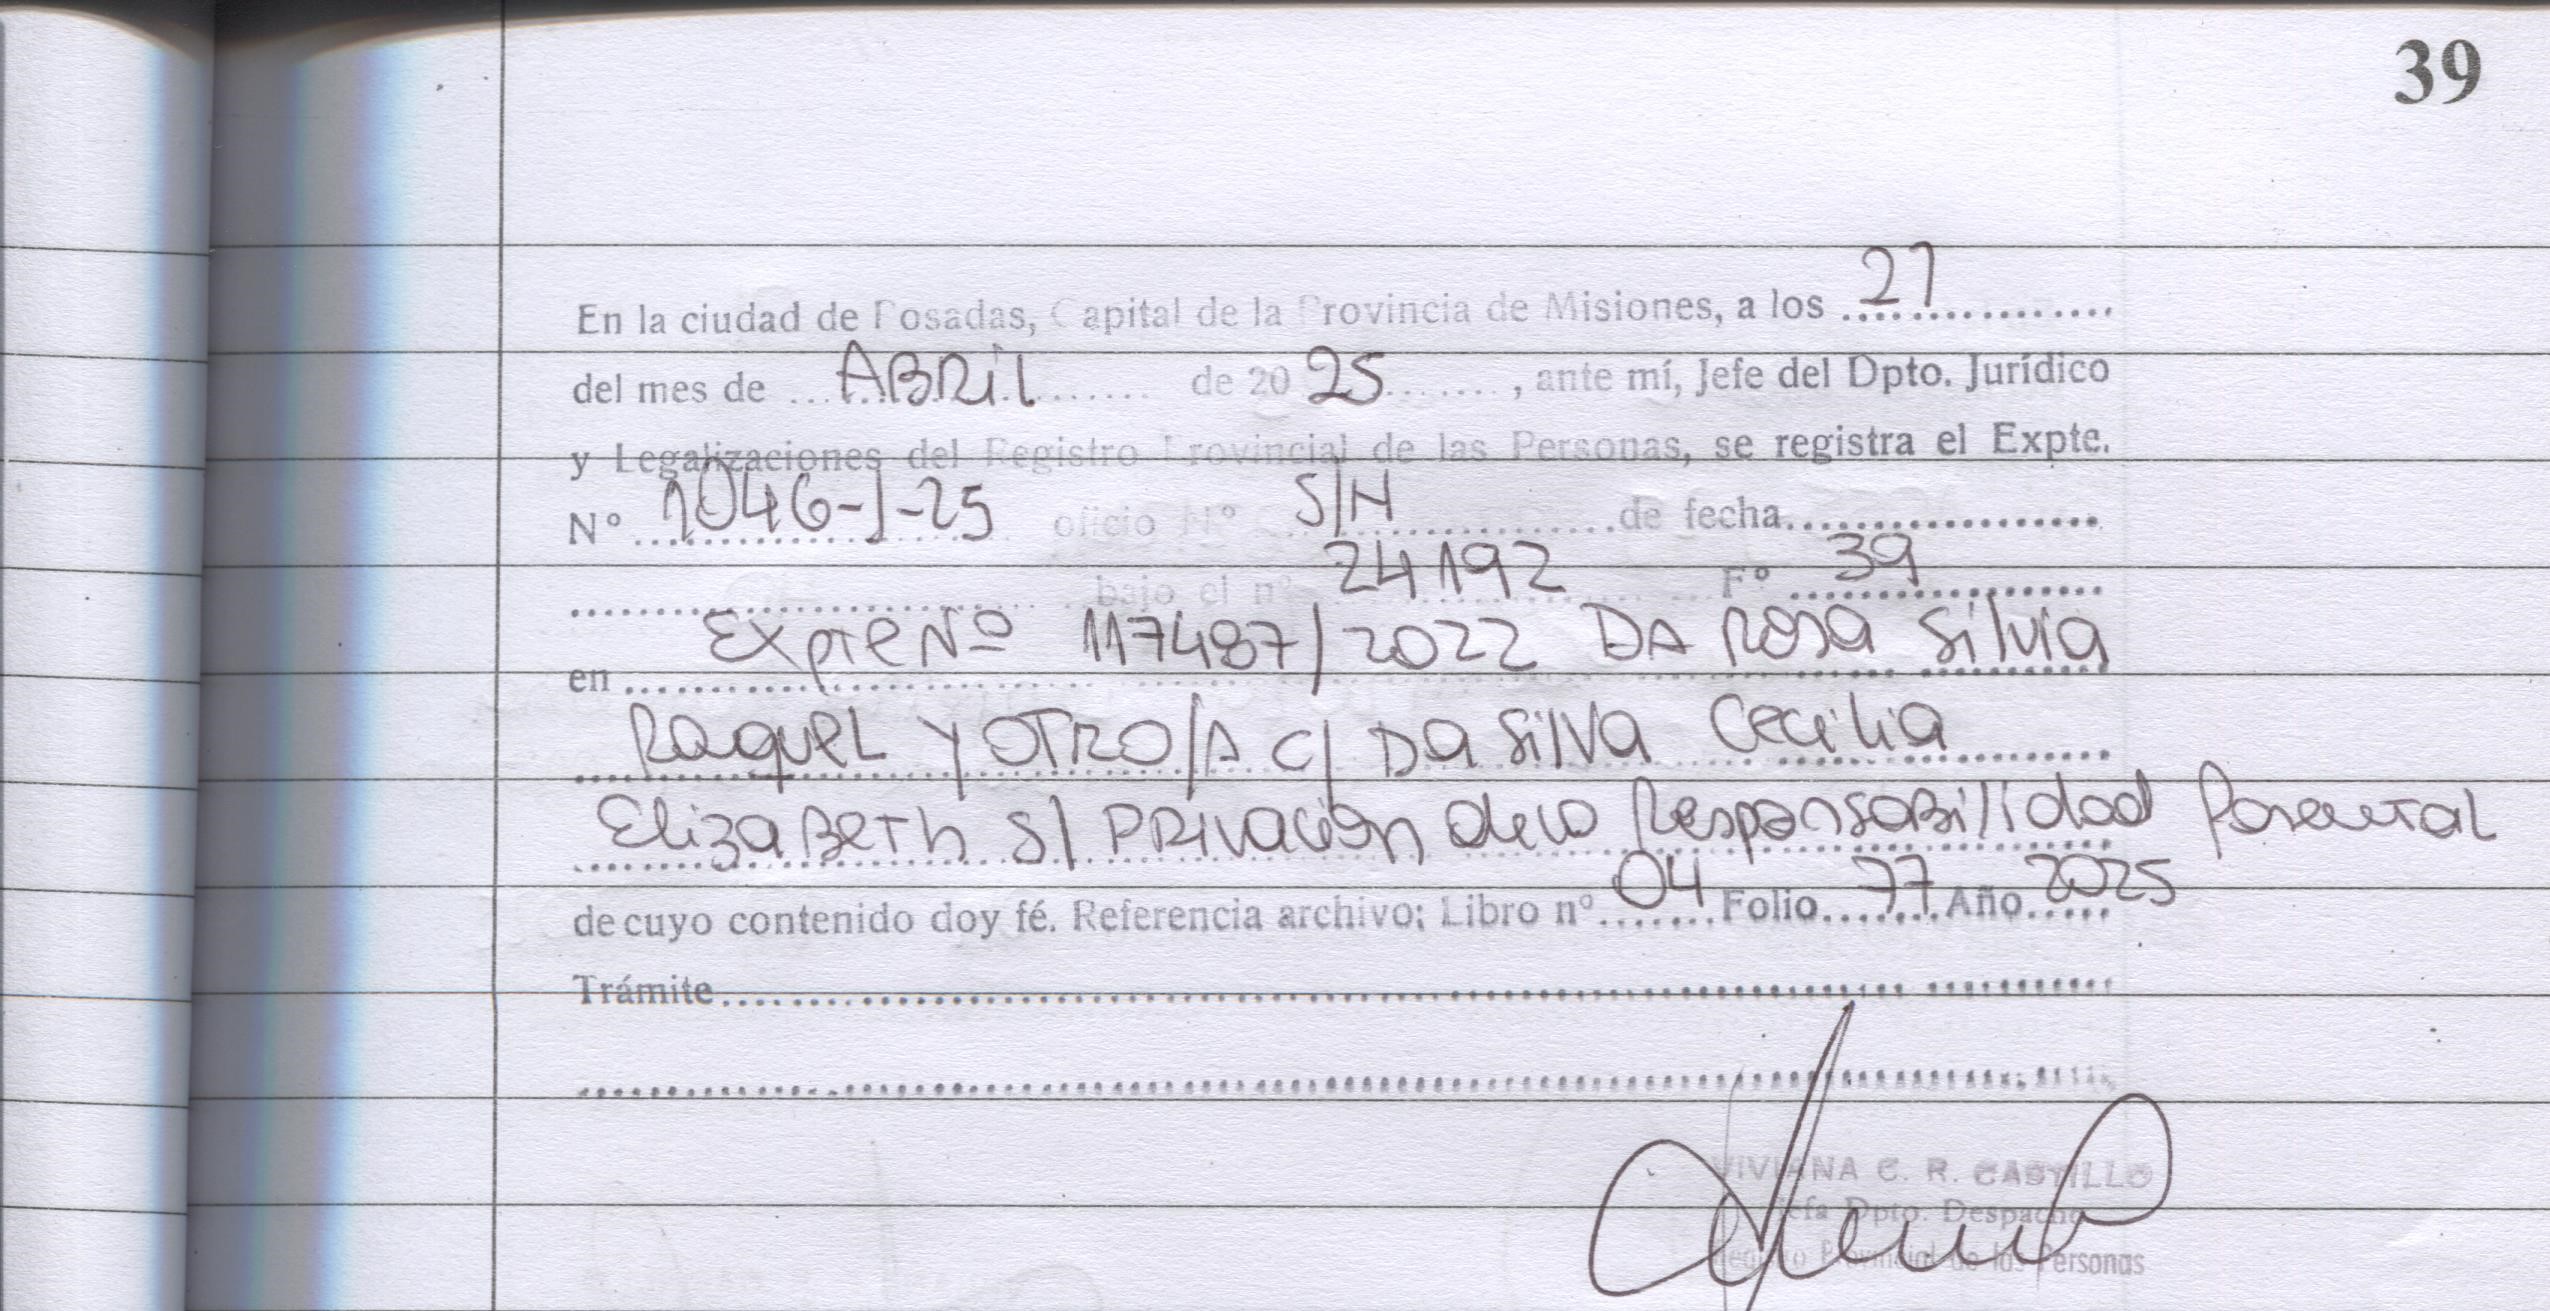 39
En la ciudad de Posadas, Capital de la Provincia de Misiones, a los 27
del mes de ABRil de 2025, ante mí, Jefe del Dpto. Jurídico
y Legalizaciones del Registro Provincial de las Personas, se registra el Expte.
N° 1046-J-25 oficio N° S/N de fecha
bajo el n° 24192 F° 39
en Expte Nº 117487/2022 DA Rosa Silvia
Raquel Y OTRO/A C/ Da Silva Cecilia
Elizabeth S/ PRIVACIÓN de la Responsabilidad Parental
de cuyo contenido doy fé. Referencia archivo; Libro n° 04 Folio 77 Año 2025
Trámite
VIVIANA C. R. CASTILLO
Jefa Dpto. Despacho
Registro Provincial de las Personas